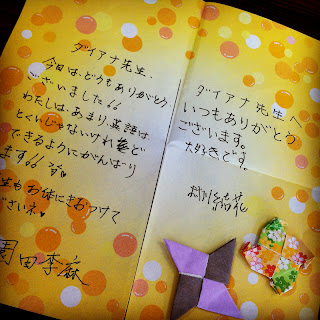 ダイアナ先生、
今日は、どうもありがとう
ございました!!
わたしは、あまり、英語は
とくいじゃないけれど
できるようにがんばり
ます!!
生もお体にきおつけて
ださいネ♥
園田李麻
ダイアナ先生へ
いつもありがとう
ございます。
大好きです。
結花